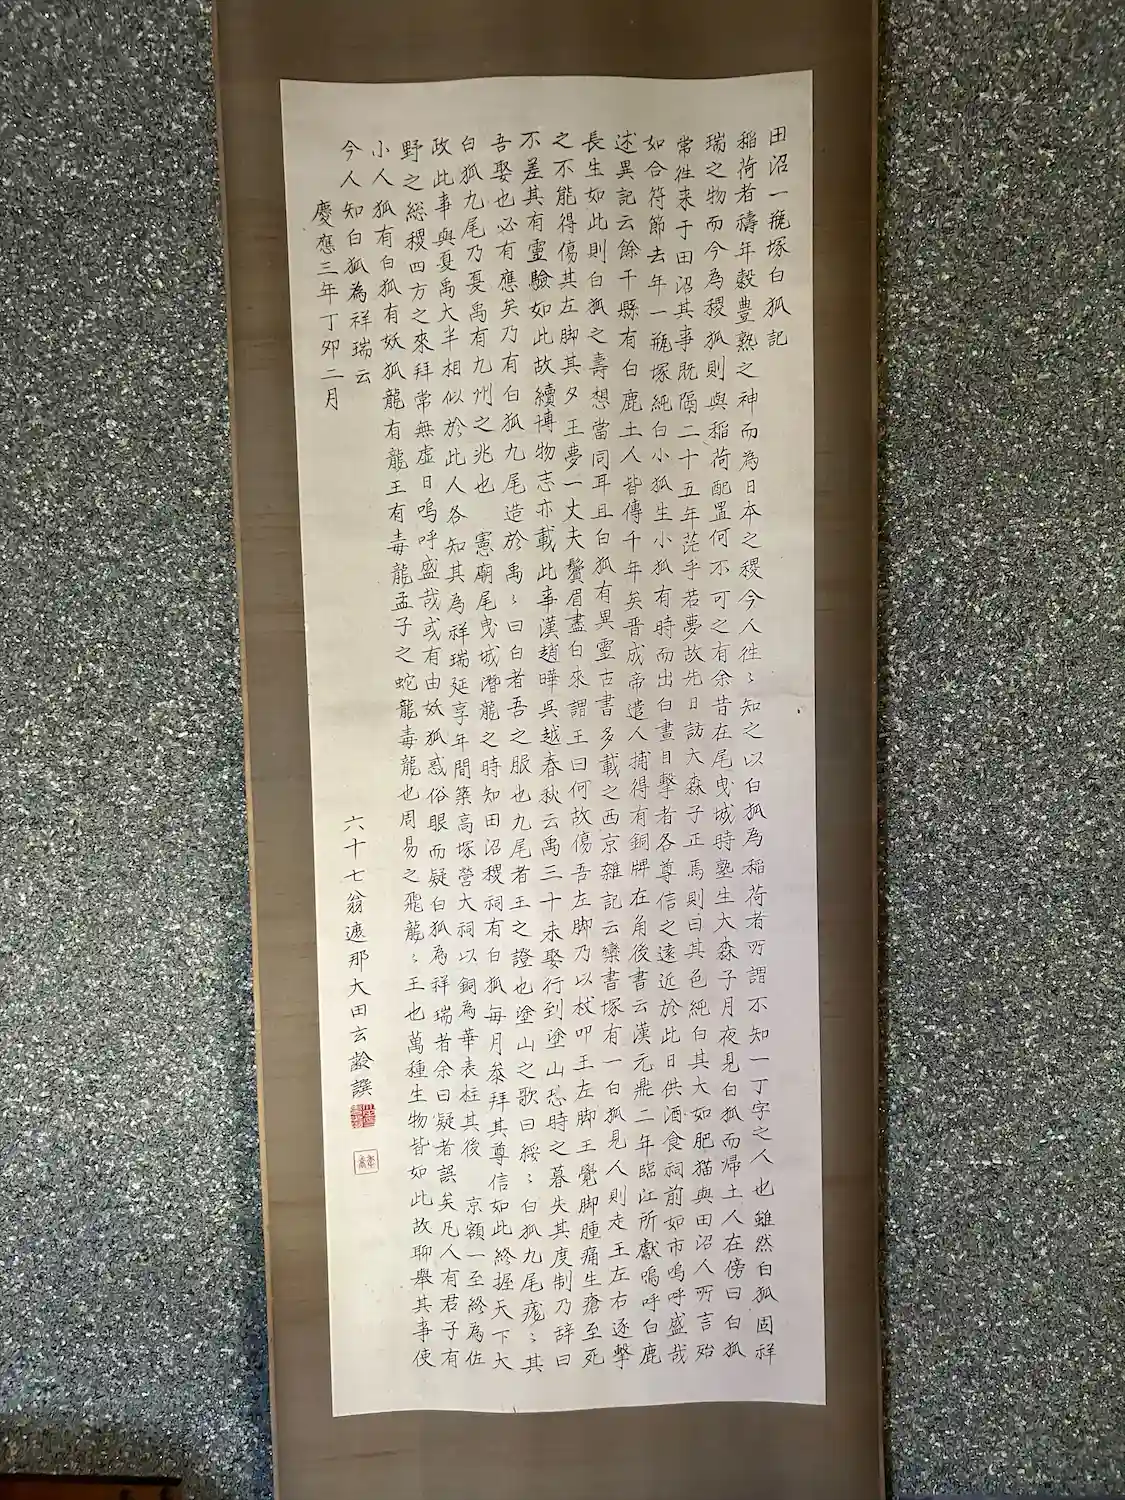 田沼一瓶塚白狐記
稲荷者禱年穀豊熟之神而為日本之稷今人徃〻知之以白狐為稲荷者所謂不知一丁字之人也雖然白狐固祥
瑞之物而今為稷狐則與稲荷配置何不可之有余昔在尾曳城時塾生大森子月夜見白狐而帰土人在傍曰白狐
常徃来于田沼其事既隔二十五年茫乎若夢故先日訪大森子正焉則曰其色純白其大如肥猫與田沼人所言殆
如合符節去年一瓶塚純白小狐生小狐有時而出白晝目擊者各尊信之遠近於此日供酒食祠前如市嗚呼盛哉
述異記云餘干縣有白鹿土人皆傳千年矣晋成帝遣人捕得有銅牌在角後書云漢元鼎二年臨江所獻嗚呼白鹿
長生如此則白狐之壽想當同耳且白狐有異靈古書多載之西京雜記云欒書塚有一白狐見人則走王左右逐擊
之不能得傷其左脚其夕王夢一丈夫鬢眉盡白來謂王曰何故傷吾左脚乃以杖叩王左脚王覺脚腫痛生瘡至死
不差其有靈驗如此故續博物志亦載此事漢趙曄吳越春秋云禹三十未娶行到塗山恐時之暮失其度制乃辞曰
吾娶也必有應矣乃有白狐九尾造於禹〻曰白者吾之服也九尾者王之證也塗山之歌曰綏〻白狐九尾痝〻其
白狐九尾乃夏禹有九州之兆也　憲廟尾曳城潛龍之時知田沼稷祠有白狐毎月叅拜其尊信如此終握天下大
政此事與夏禹大半相似於此人各知其為祥瑞延享年間築高塚營大祠以銅為華表柱其後　京額一至終為佐
野之総稷四方之來拜常無虚日嗚呼盛哉或有由妖狐惑俗眼而疑白狐為祥瑞者余曰疑者誤矣凡人有君子有
小人狐有白狐有妖狐龍有龍王有毒龍孟子之蛇龍毒龍也周易之飛龍〻王也萬種生物皆如此故聊舉其事使
今人知白狐為祥瑞云
慶應三年丁夘二月
六十七翁遮那大田玄齡譔